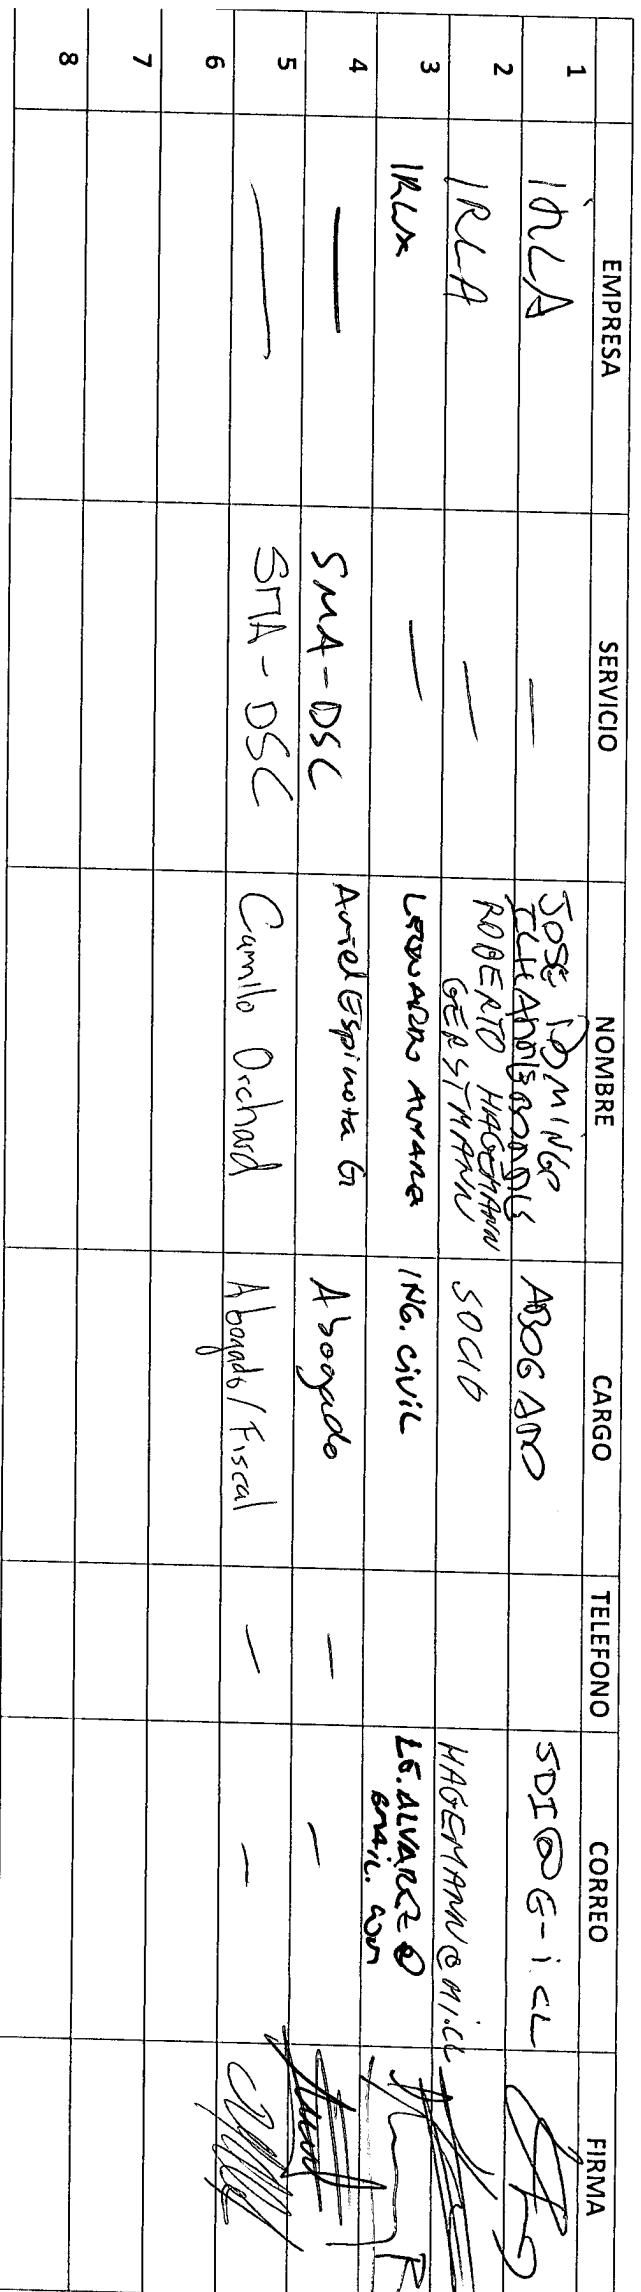 EMPRESA SERVICIO NOMBRE CARGO TELEFONO CORREO FIRMA
1 IRLA — JOSE DOMINGO ABOGADO JDI@G-i.CL
2 IRLA — ROBERTO HAGEMANN GERSTMANN SOCIO HAGEMANN@MI.CL
3 IRLA — LEONARDO ING. CIVIL LE.ALVAREZ@GMAIL.COM
4 — SMA-DSC Ariel Espinoza G Abogado — —
5 — SMA-DSC Camilo Orchard Abogado/Fiscal — —
6
7
8